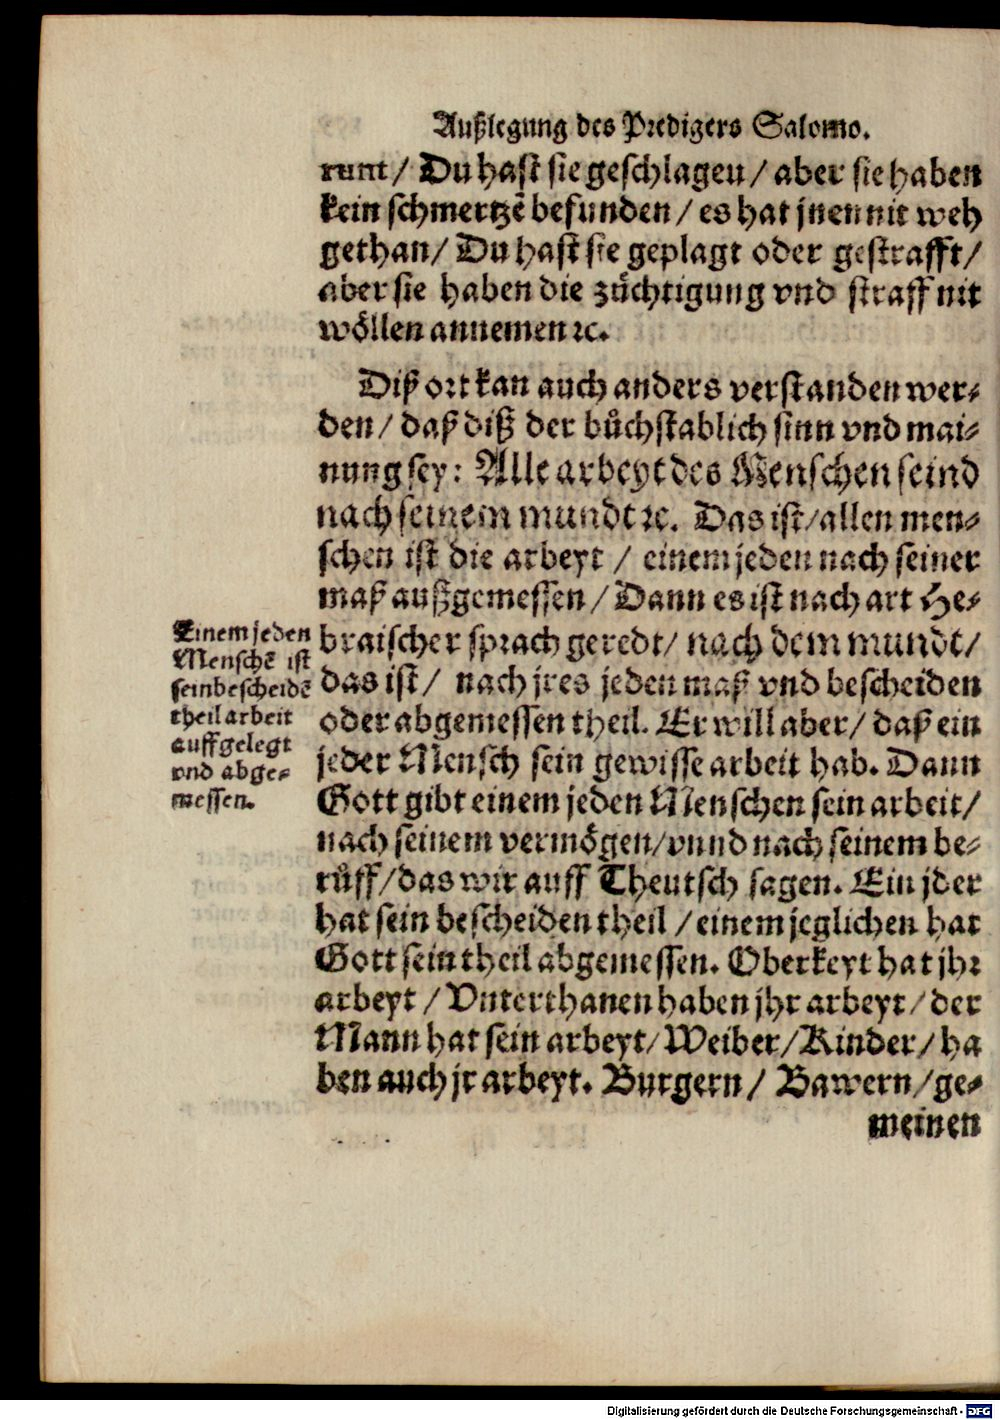 Außlegung des Predigers Salomo.
runt / Du hast sie geschlagen / aber sie haben
kein schmertzẽ befunden / es hat jnen nit weh
gethan / Du hast sie geplagt oder gestrafft /
aber sie haben die züchtigung vnd straff nit
wöllen annemen ꝛc.
Diß ort kan auch anders verstanden wer⸗
den / daß diß der bůchstablich sinn vnd mai⸗
nung sey: Alle arbeyt des Menschen seind
nach seinem mundt ꝛc. Das ist / allen men⸗
schen ist die arbeyt / einem jeden nach seiner
maß außgemessen / Dann es ist nach art He⸗
braischer sprach geredt / nach dem mundt /
das ist / nach jres jeden maß vnd bescheiden
oder abgemessen theil. Er will aber / daß ein
jeder Mensch sein gewisse arbeit hab. Dann
Gott gibt einem jeden Menschen sein arbeit /
nach seinem vermögen / vnnd nach seinem be⸗
růff / das wir auff Theutsch sagen. Ein jder
hat sein bescheiden theil / einem jeglichen hat
Gott sein theil abgemessen. Oberkeyt hat jhr
arbeyt / Vnterthanen haben jhr arbeyt / der
Mann hat sein arbeyt / Weiber / Kinder / ha
ben auch jr arbeyt. Burgern / Bawern / ge⸗
meinen
Einem jeden
Menschẽ ist
sein bescheidẽ
theil arbeit
auffgelegt
vnd abge⸗
messen.
Digitalisierung gefördert durch die Deutsche Forschungsgemeinschaft - DFG